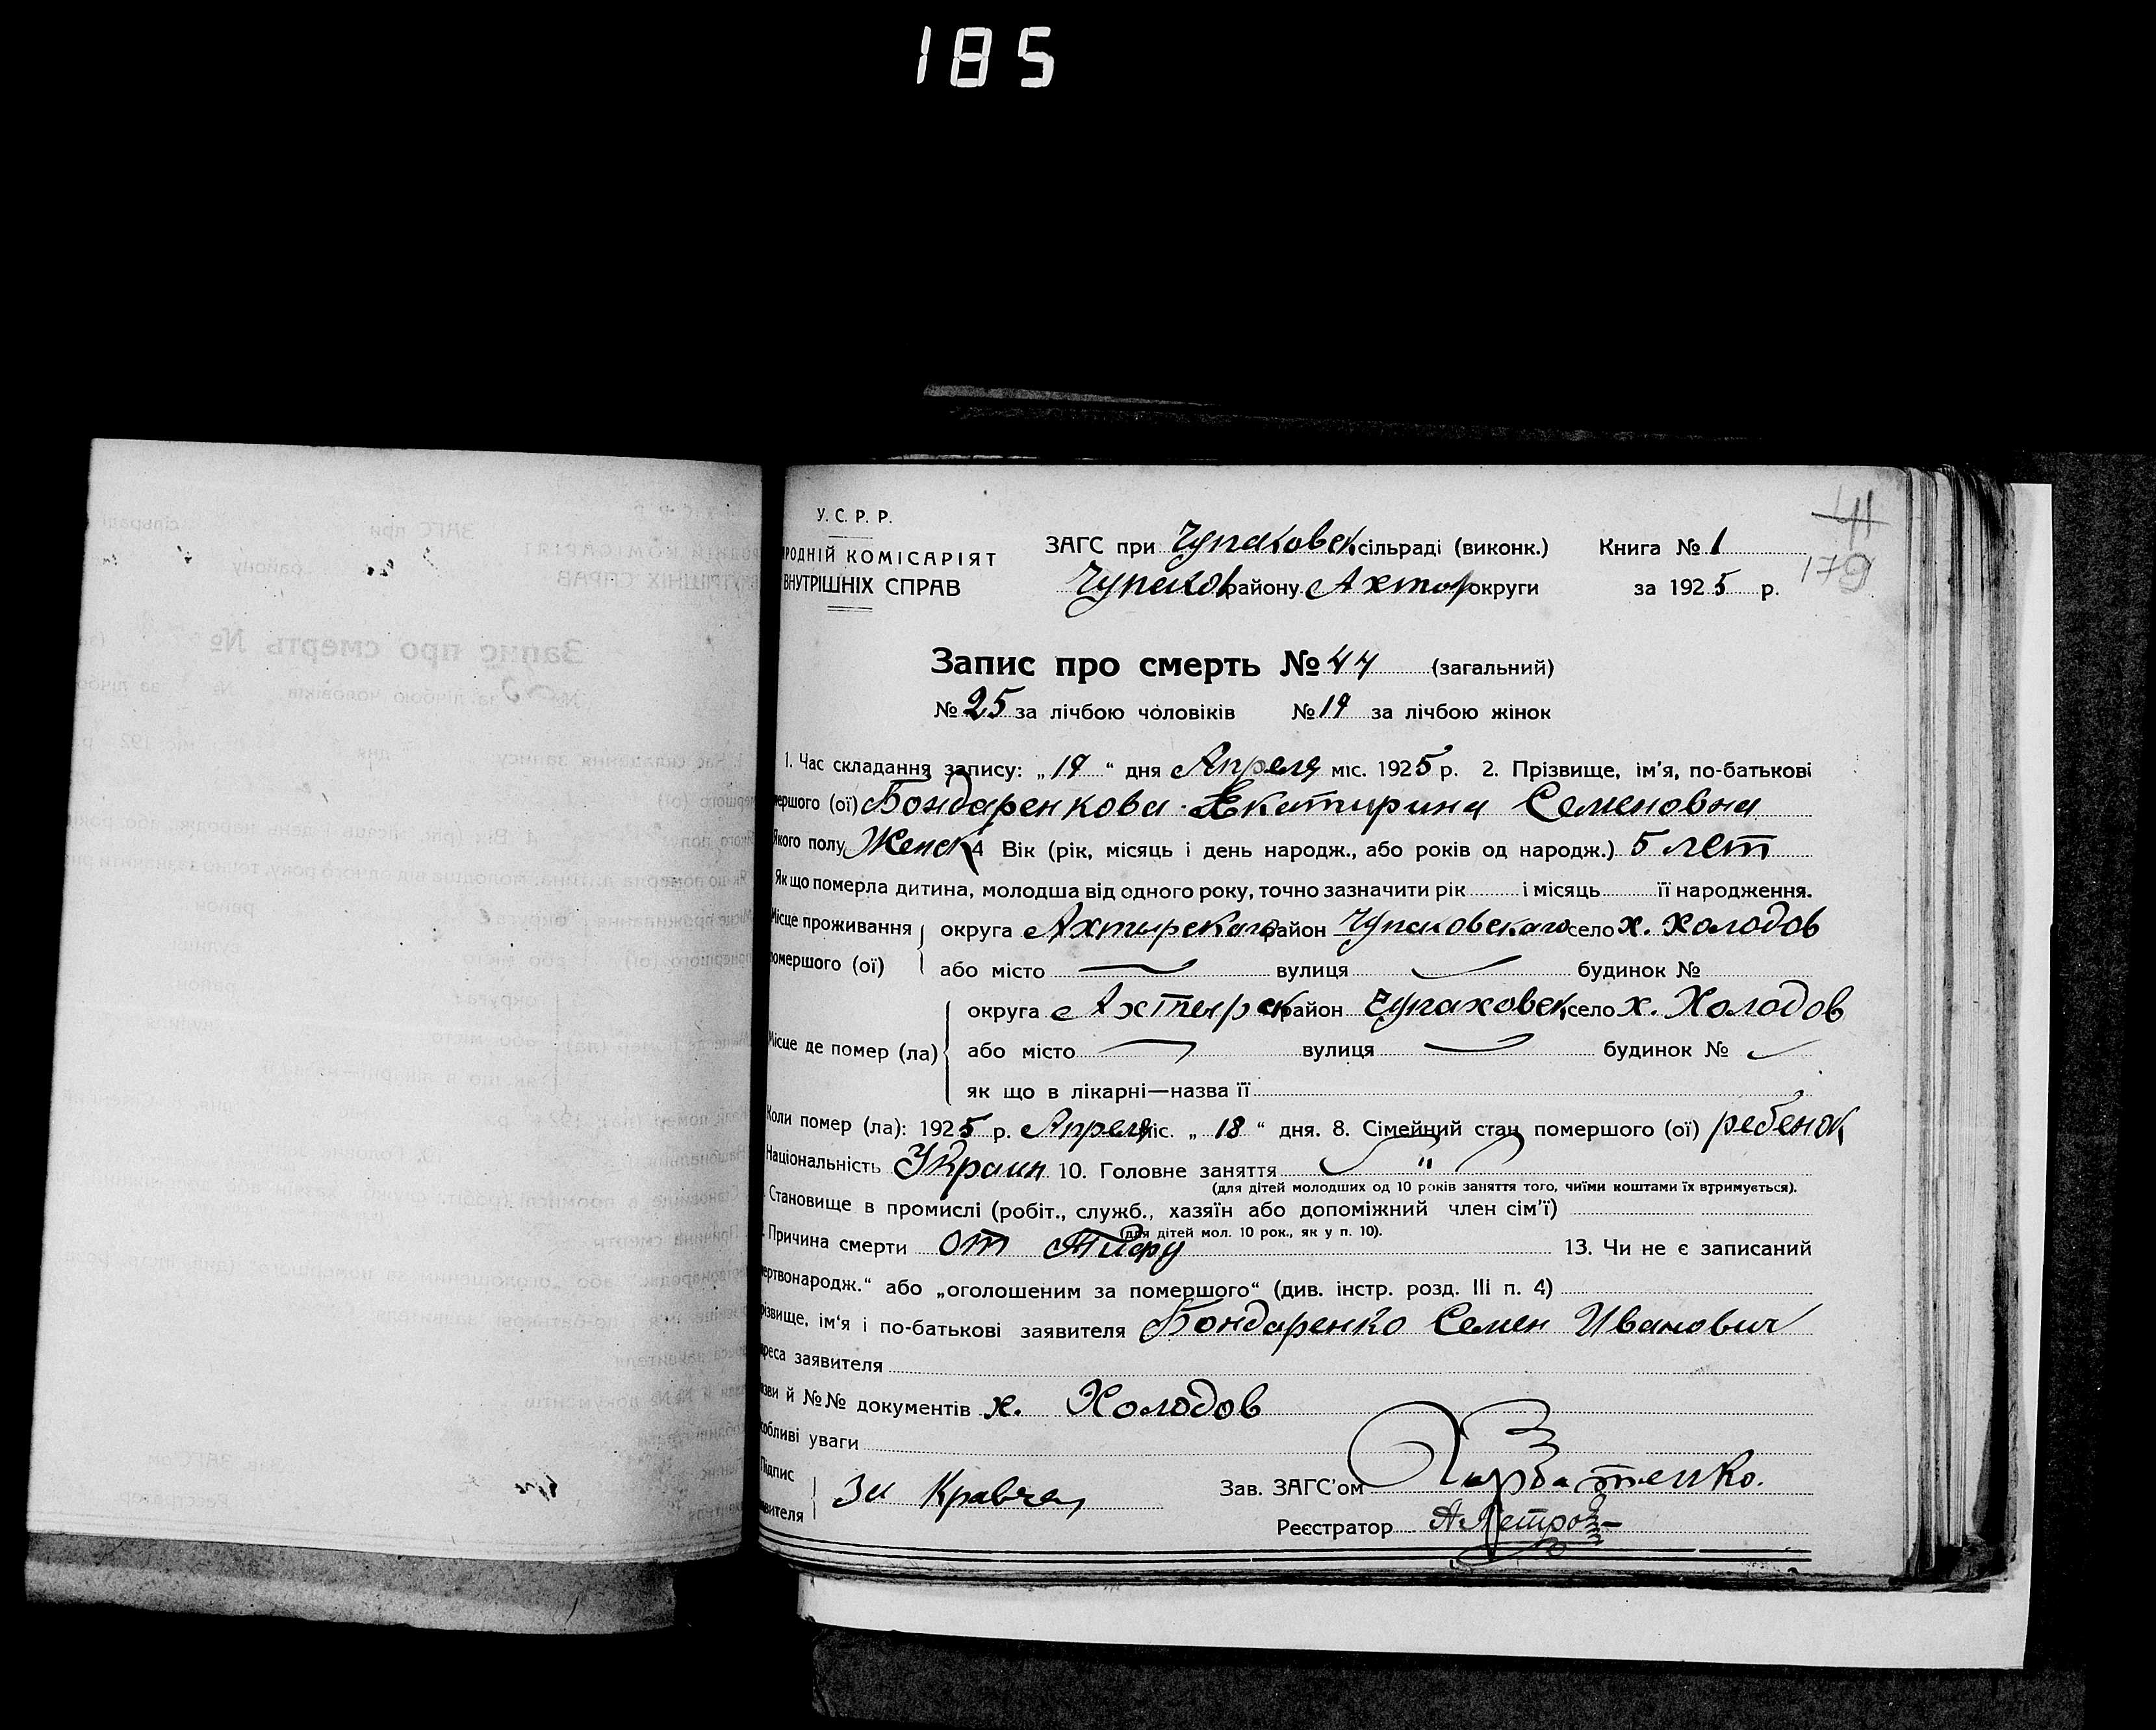 185
У. С. Р. Р.
РОДНІЙ КОМІСАРІЯТ
ВНУТРІШНІХ СПРАВ
ЗАГС при Чупаховск сільраді (виконк.) Книга № 1
Чупахов району Ахтыр округи за 1925 р.
179
Запис про смерть № 44 (загальний)
№ 25 за лічбою чоловіків № 19 за лічбою жінок
1. Час складання запису: „19“ дня Апреля міс. 1925 р. 2. Прізвище, ім'я, по-батькові
мершого (ої) Бондаренкова Екатирина Семеновна
Якого полу Женск 4 Вік (рік, місяць і день народж., або років од народж.) 5 лет
Як що померла дитина, молодша від одного року, точно зазначити рік і місяць її народження.
Місце проживання округа Ахтырского район Чупаховского село х. Холодов
помершого (ої) або місто вулиця будинок №
Місце де помер (ла) округа Ахтырск район Чупаховск село х. Холодов
або місто вулиця будинок №
як що в лікарні—назва її
Коли помер (ла): 1925 р. Апреля міс. „18“ дня. 8. Сімейний стан помершого (ої) ребенок
Національність Украин 10. Головне заняття "
(для дітей молодших од 10 років заняття того, чиїми коштами їх втримується).
Становище в промислі (робіт., служб., хазяїн або допоміжний член сім'ї)
(для дітей мол. 10 рок., як у п. 10).
Причина смерти от Тифу 13. Чи не є записаний
ертвонародж.“ або „оголошеним за помершого“ (див. інстр. розд. III п. 4)
різвище, ім'я і по-батькові заявителя Бондаренко Семен Иванович
дреса заявителя
азви й №№ документів х. Холодов
собливі уваги
Підпис
явителя За Кравчен Зав. ЗАГС'ом
Реєстратор А. Петров